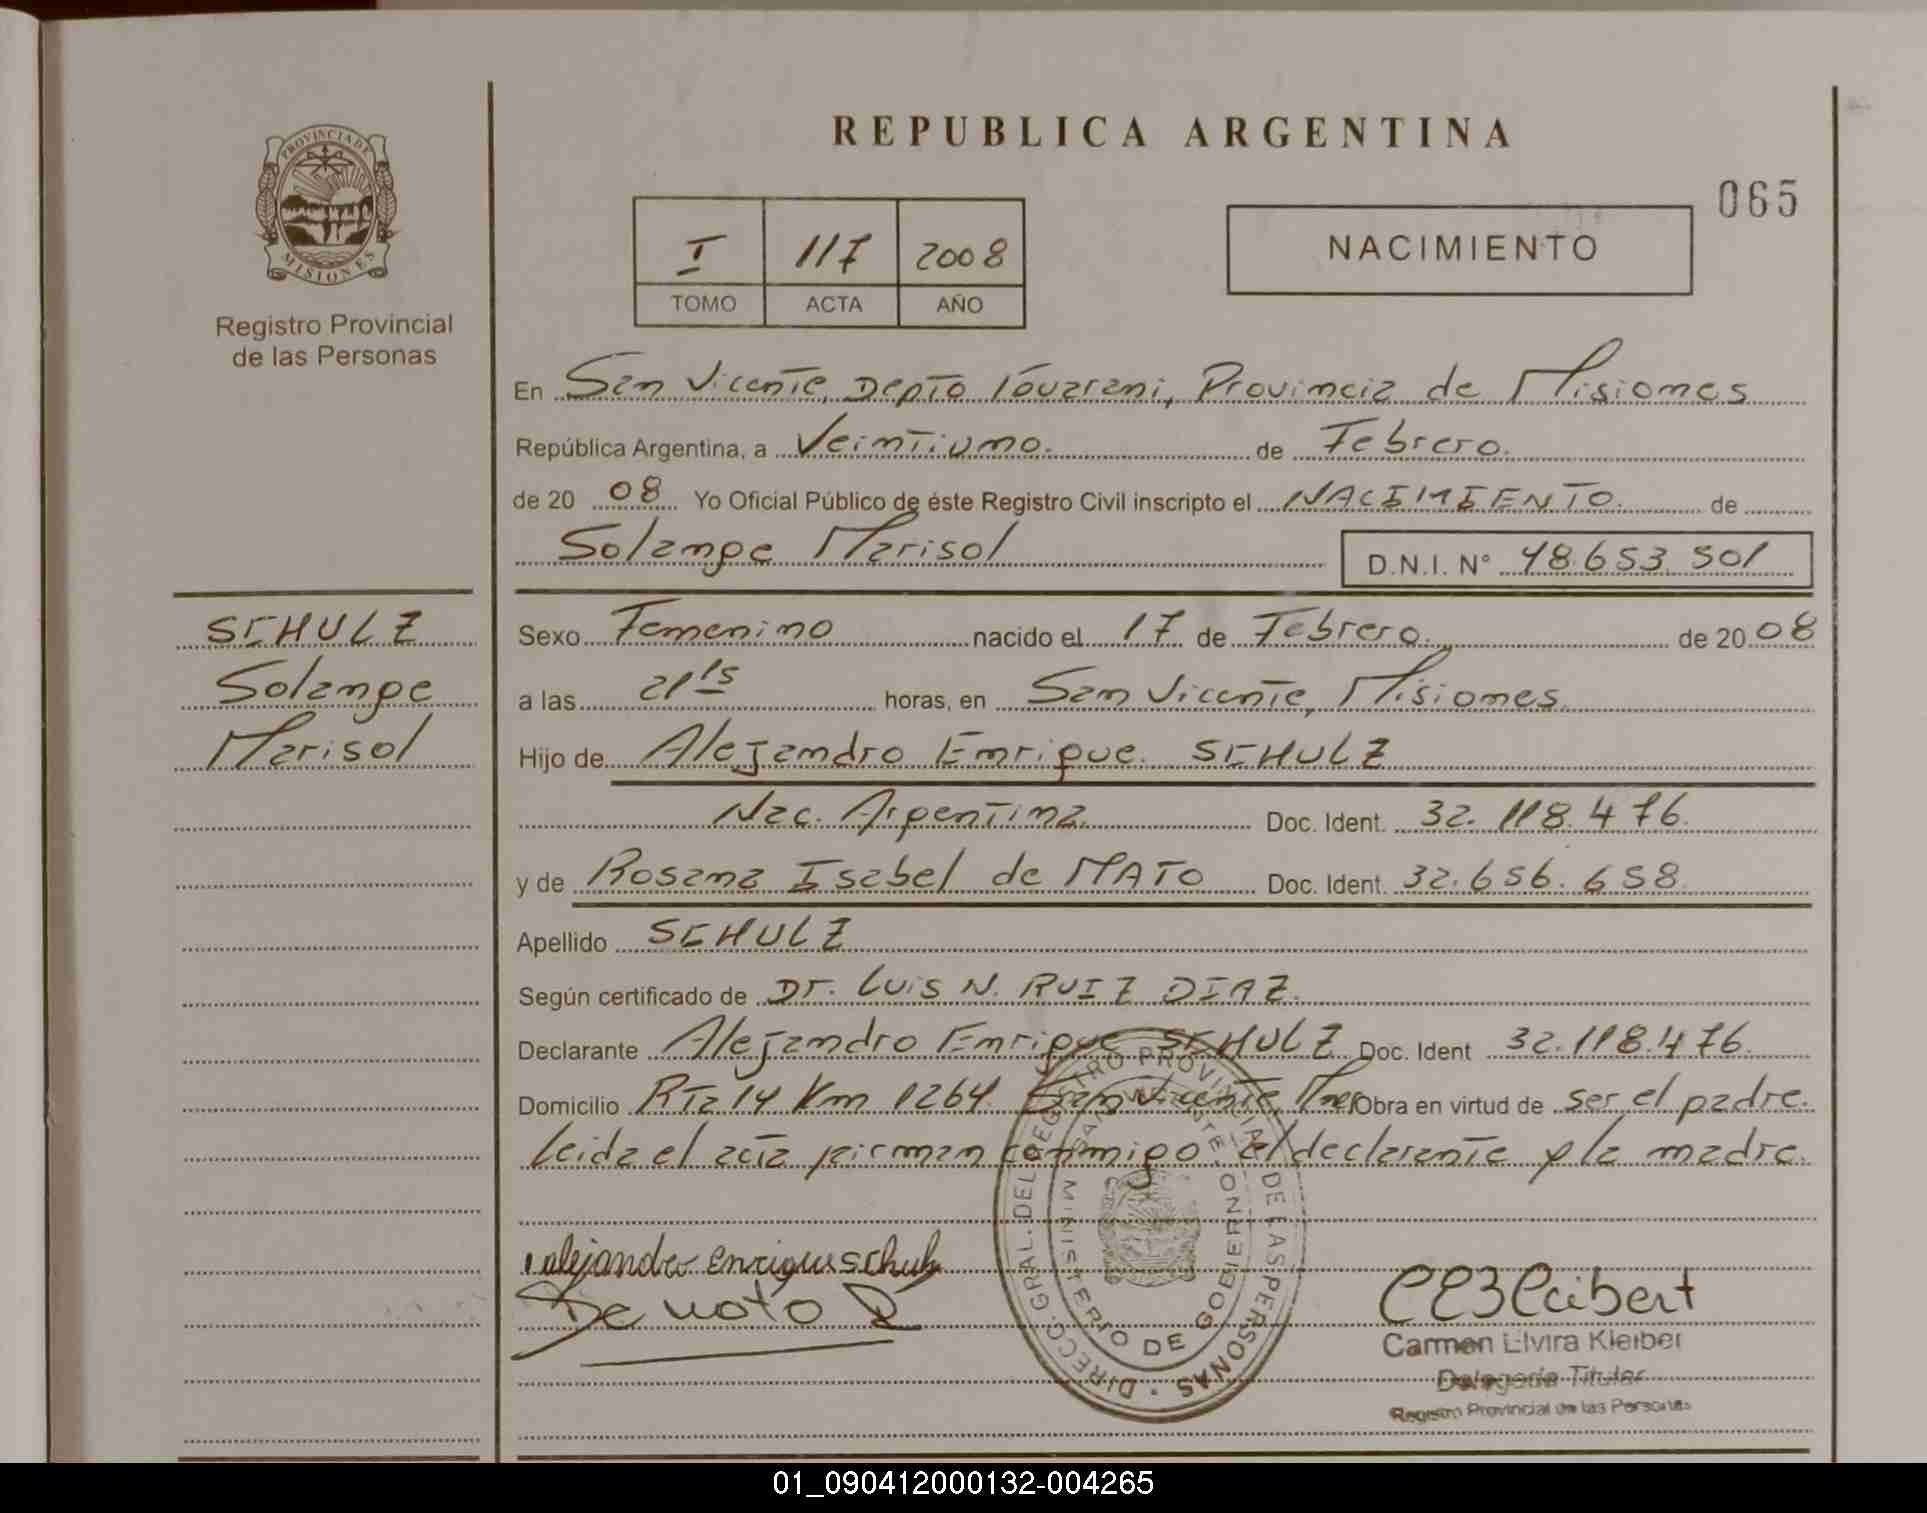 REPUBLICA ARGENTINA
065
PROVINCIA DE
MISIONES
Registro Provincial
de las Personas
I 117 2008
TOMO ACTA AÑO
NACIMIENTO
En San Vicente, Depto Guarani, Provincia de Misiones
República Argentina, a Veintiuno. de Febrero.
de 20 08 Yo Oficial Público de éste Registro Civil inscripto el NACIMIENTO. de
Solange Marisol D.N.I. N° 48.653.501
SCHULZ
Solange
Marisol
Sexo Femenino nacido el 17 de Febrero. de 20 08
a las 21 15 horas, en San Vicente, Misiones.
Hijo de Alejandro Enrique SCHULZ
Nac. Argentina. Doc. Ident. 32.118.476.
y de Rosana Isabel de MATO Doc. Ident. 32.656.658.
Apellido SCHULZ
Según certificado de Dr. Luis N. RUIZ DIAZ.
Declarante Alejandro Enrique SCHULZ Doc. Ident 32.118.476.
Domicilio Rta 14 Km 1264 San Vicente, Mnes Obra en virtud de ser el padre.
Leida el acta firman conmigo el declarante y la madre.
alejandro enrique schulz
De moto R
DIRECC. GRAL. DEL REGISTRO PROVINCIAL DE LAS PERSONAS
MINISTERIO DE GOBIERNO
SAN VICENTE
Carmen Elvira Kleiber
Delegada Titular
Registro Provincial de las Personas
01_090412000132-004265